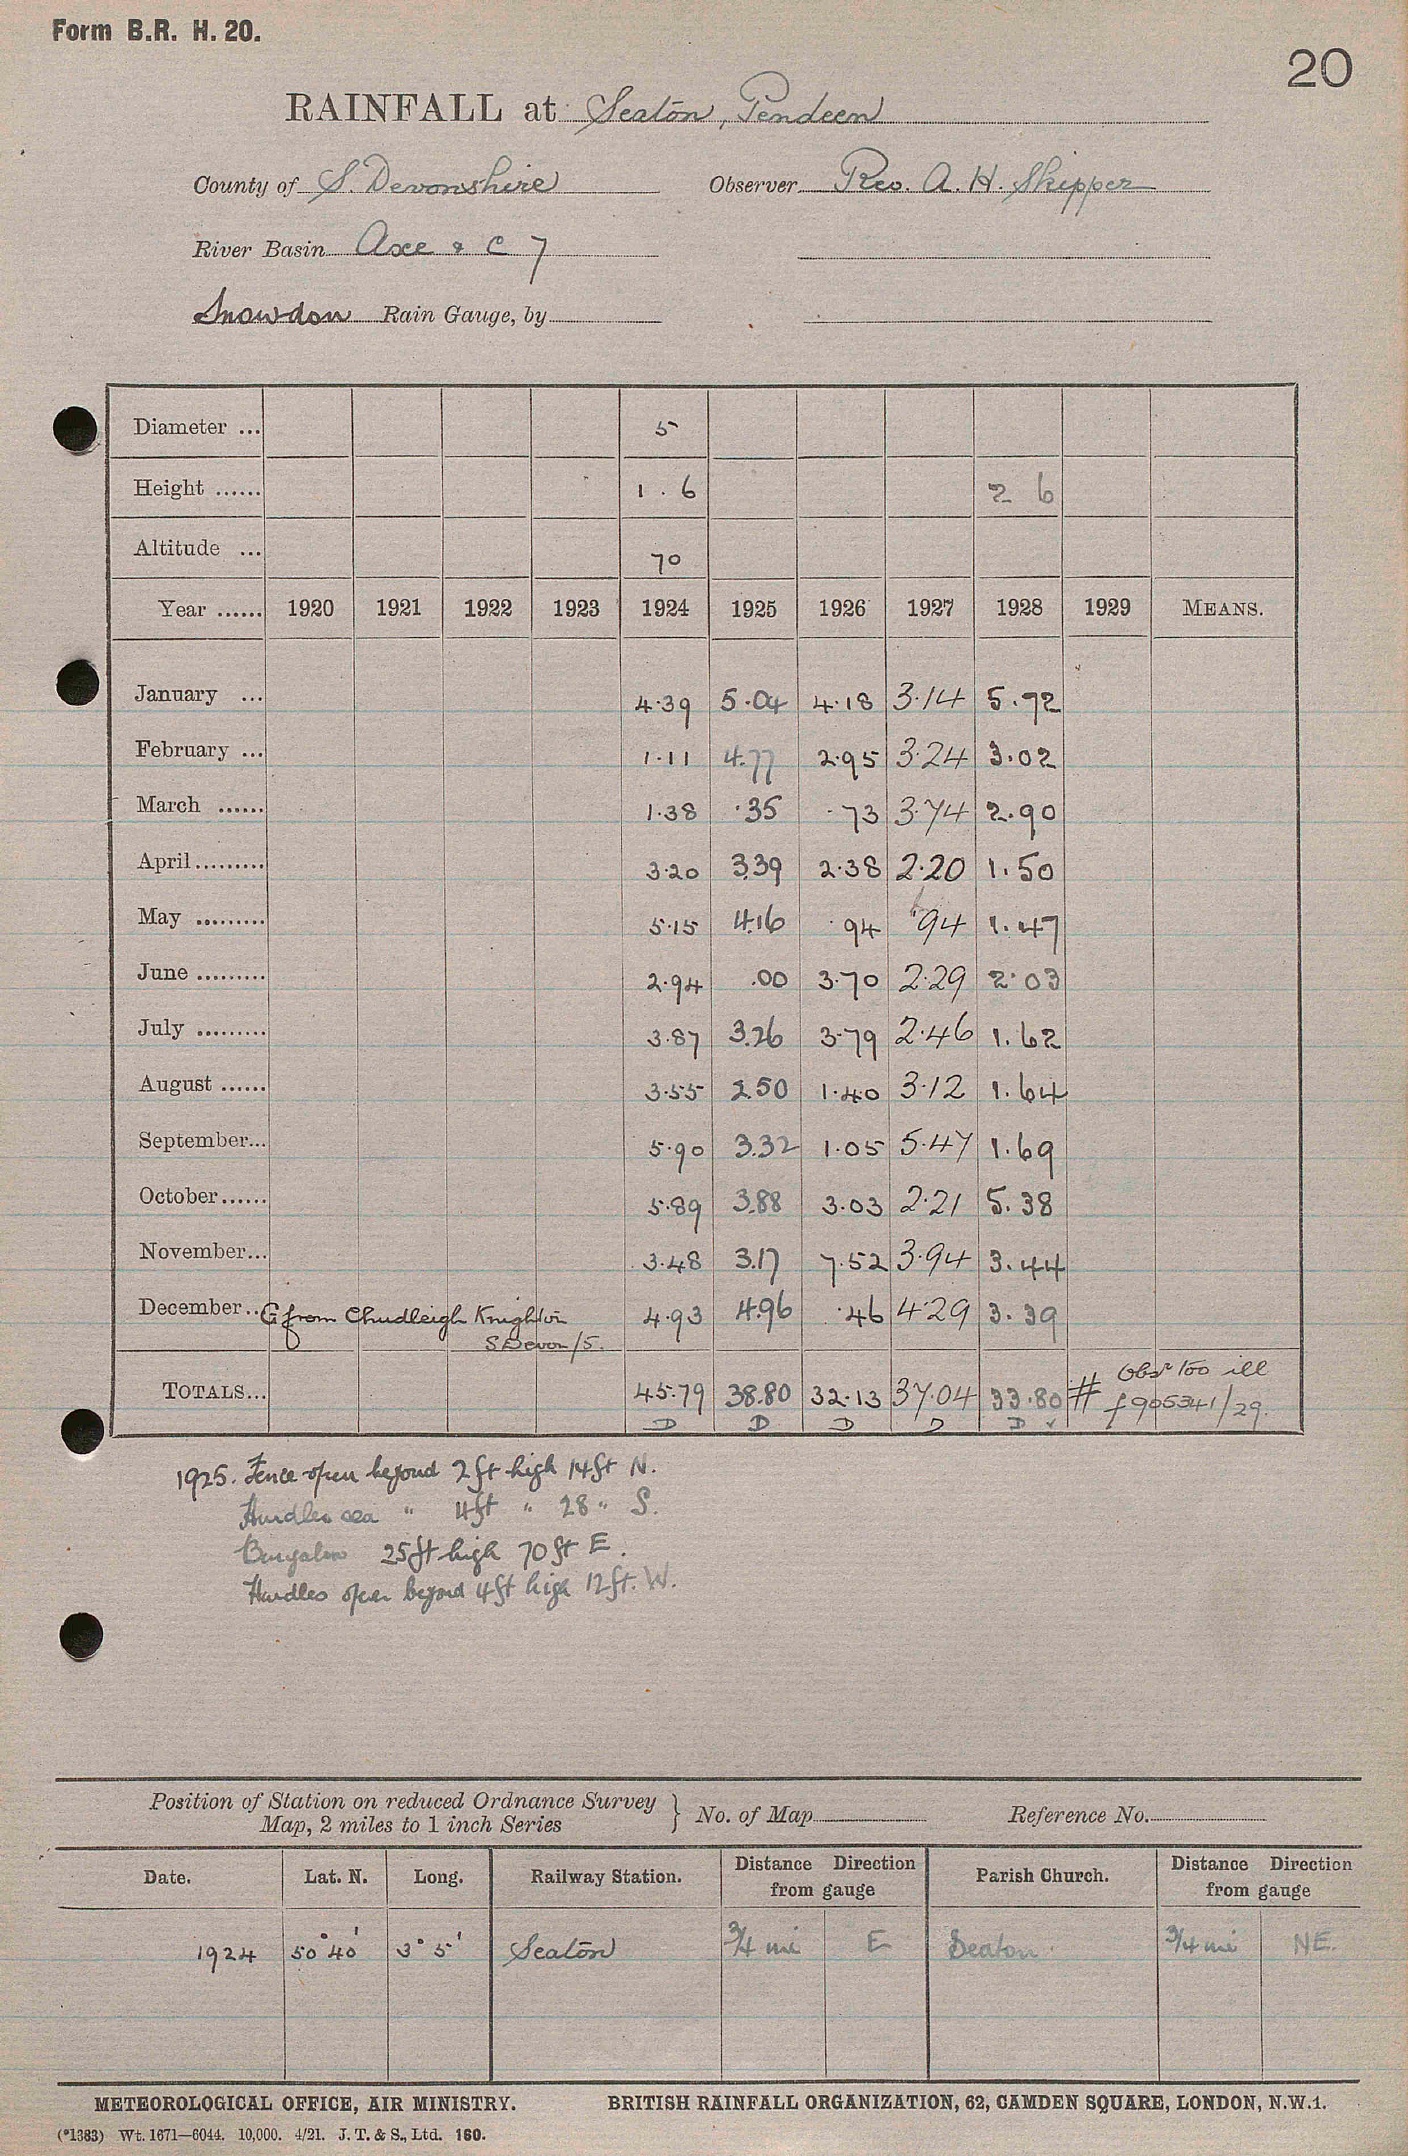 Form B.R. H. 20.
20
RAINFALL at Seaton, Pendeen
County of S. Devonshire Observer Rev. A. H. Skipper
River Basin Axe & C 7
Snowdon Rain Gauge, by
Diameter ... 5
Height ...... 1 . 6 2 6
Altitude ... 70
Year ...... 1920 1921 1922 1923 1924 1925 1926 1927 1928 1929 MEANS.
January ... 4.39 5.04 4.18 3.14 5.72
February ... 1.11 4.77 2.95 3.24 3.02
March ...... 1.38 .35 .73 3.74 2.90
April......... 3.20 3.39 2.38 2.20 1.50
May ......... 5.15 4.16 .94 .94 1.47
June ......... 2.94 .00 3.70 2.29 2.03
July ......... 3.87 3.26 3.79 2.46 1.62
August ...... 3.55 2.50 1.40 3.12 1.64
September... 5.90 3.32 1.05 5.47 1.69
October...... 5.89 3.88 3.03 2.21 5.38
November... 3.48 3.17 7.52 3.94 3.44
December... G from Chudleigh Knighton 4.93 4.96 .46 4.29 3.39
S Devon/5.
TOTALS... 45.79 38.80 32.13 37.04 33.80 # Obsr too ill
D D D D D ✓ f905341/29.
1925. Fence open beyond 2ft high 14ft N.
Hurdles sea " 4ft " 28 " S.
Bungalow 25ft high 70ft E.
Hurdles open beyond 4ft high 12ft. W.
Position of Station on reduced Ordnance Survey
Map, 2 miles to 1 inch Series } No. of Map Reference No.
Date. Lat. N. Long. Railway Station. Distance Direction from gauge Parish Church. Distance Direction from gauge
1924 50° 40' 3° 5' Seaton 3/4 mi E Seaton 3/4 mi NE.
METEOROLOGICAL OFFICE, AIR MINISTRY. BRITISH RAINFALL ORGANIZATION, 62, CAMDEN SQUARE, LONDON, N.W.1.
(*1383) Wt. 1671—6044. 10,000. 4/21. J. T. & S., Ltd. 160.